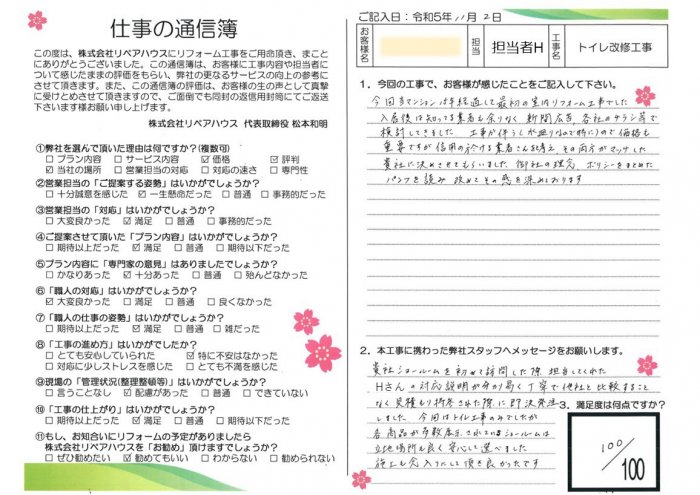 仕事の通信簿
この度は、株式会社リペアハウスにリフォーム工事をご用命頂き、まこと
にありがとうございました。この通信簿は、お客様に工事内容や担当者に
ついて感じたままの評価をもらい、弊社の更なるサービスの向上の参考に
させて頂きます。また、この通信簿の評価は、お客様の生の声として真摯
に受けとめさせて頂きますので、ご面倒でも同封の返信用封筒にてご返送
下さいます様お願い申し上げます。
株式会社リペアハウス 代表取締役 松本和明
①弊社を選んで頂いた理由は何ですか?(複数可)
□プラン内容 □サービス内容 ☑価格 ☑評判
☑当社の場所 □営業担当の対応 □対応の速さ □専門性
②営業担当の「ご提案する姿勢」はいかがでしょうか?
□十分誠意を感じた ☑一生懸命だった □普通 □事務的だった
③営業担当の「対応」はいかがでしょうか?
□大変良かった ☑満足 □普通 □事務的だった
④ご提案させて頂いた「プラン内容」はいかがでしょうか?
□期待以上だった ☑満足 □普通 □期待以下だった
⑤プラン内容に「専門家の意見」はありましたでしょうか?
□かなりあった ☑十分あった □普通 □殆んどなかった
⑥「職人の対応」はいかがでしょうか?
☑大変良かった □満足 □普通 □良くなかった
⑦「職人の仕事の姿勢」はいかがでしょうか?
□期待以上だった ☑満足 □普通 □雑だった
⑧「工事の進め方」はいかがでしたか?
□とても安心していられた ☑特に不安はなかった
□対応に少しストレスを感じた □とても不満を感じた
⑨現場の「管理状況(整理整頓等)」はいかがでしょうか?
□言うことなし ☑配慮があった □普通 □できていない
⑩「工事の仕上がり」はいかがでしょうか?
□期待以上だった ☑満足 □普通 □期待以下だった
⑪もし、お知合いにリフォームの予定がありましたら
株式会社リペアハウスを「お勧め」頂けますでしょうか?
□ぜひ勧めたい ☑勧めてもいい □わからない □勧められない
ご記入日:令和5年11月2日
お客様名
担当
担当者H
工事名
トイレ改修工事
1.今回の工事で、お客様が感じたことをご記入して下さい。
今回当マンションは年経過して最初の室内リフォーム工事でした
入居後は知ってる業者も余りなく 新聞広告、各社のチラシ等で
検討してきました。工事が伴う
重要ですが 信用の於ける業者さんを考え その両方がマッチした
貴社に決めさせてもらいました 御社の理念、ポリシーをまとめた
パンフを読み 改めてその感を深めております
2.本工事に携わった弊社スタッフへメッセージをお願いします。
貴社ショールームを初めて訪問した際 担当してくれた
Hさんの対応説明が分り易く丁寧で他社と比較すること
なく見積もり持参された際に即決発注
しました 今回はトイレ工事のみでしたが
各商品が多数展示されているショールームは
立地場所も良く安心して選べました
施工も念入りにして頂き良かったです
3.満足度は何点ですか?
100/100